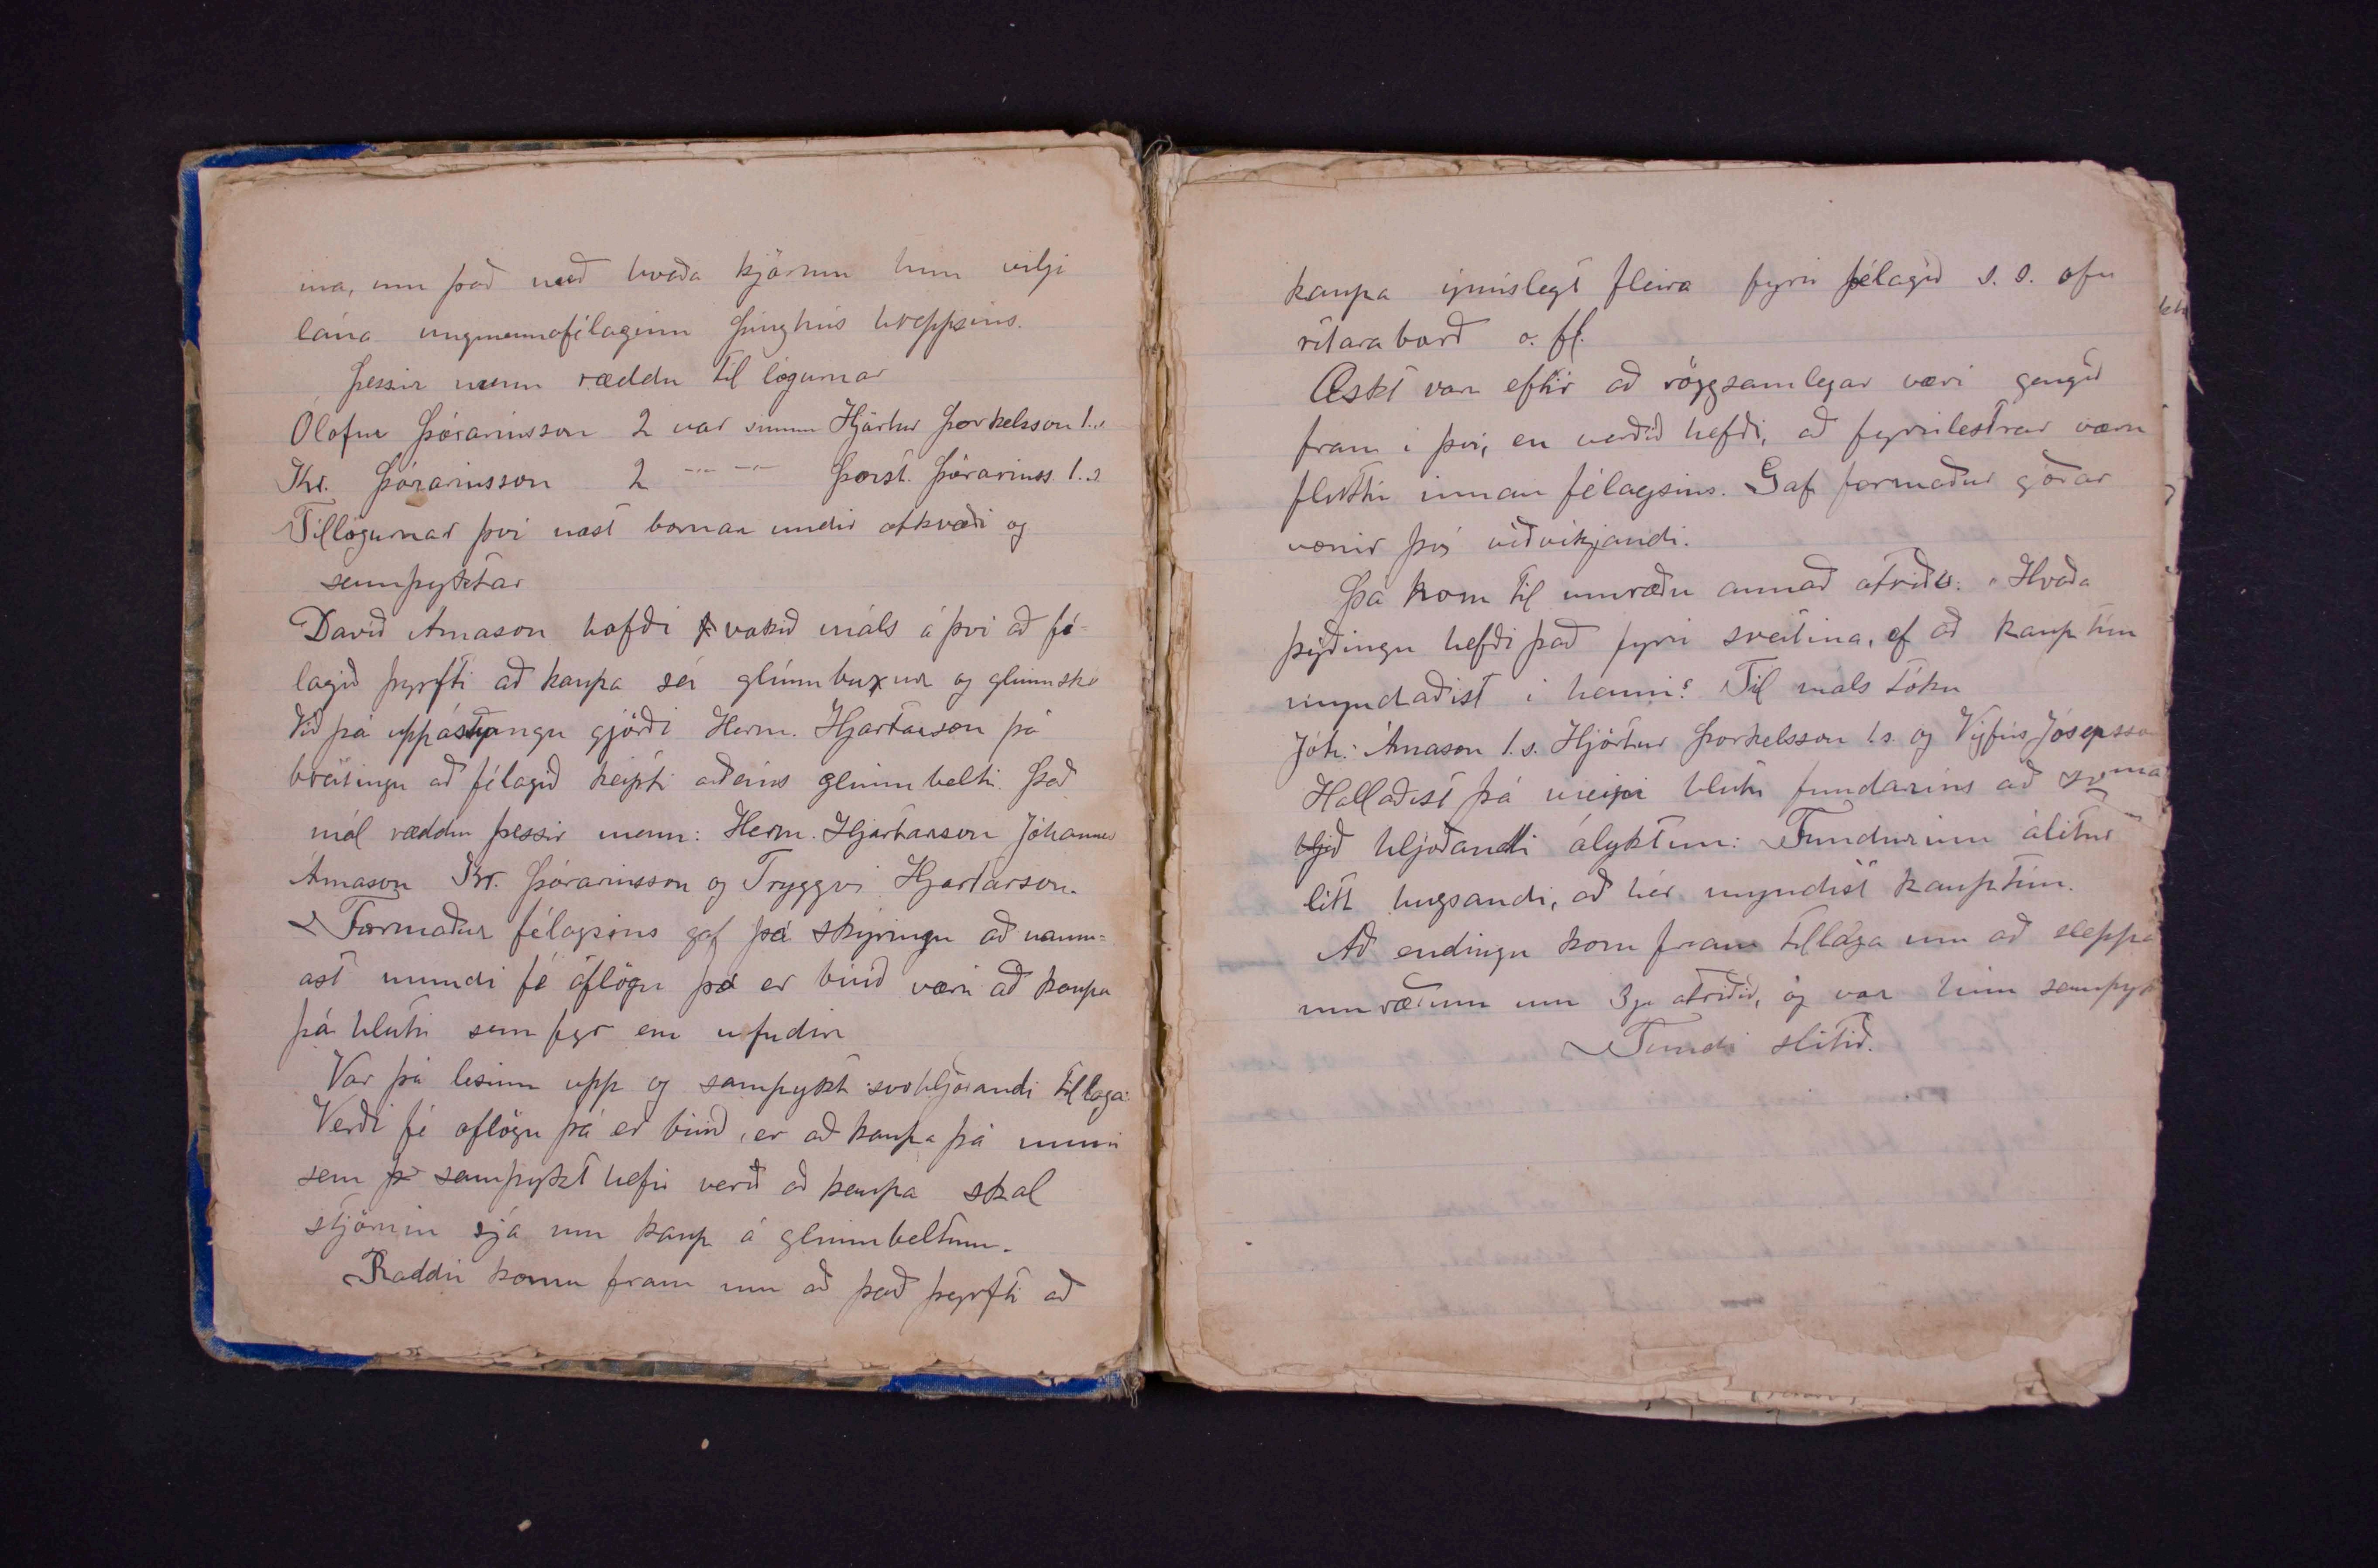 ina, um það með hvaða kjörum hun vilji
lána ungmennafélaginu þinghús hreppsins.
Þessir menn ræddu tillögurnar
Ólafur Þórarinsson 2 var sinnum Hjörtur Þorkelsson 1..s
Kr. Þórarinsson 2 -"- -"- Þorst. Þórarinss. 1..s
Tillögurnar því næst bornar undir atkvæði og
samþyktar
Davíð Árnason hafði vakið máls á því að fé-
lagið þyrfti að kaupa sér glímubuxur og glímuskó
Við þá uppástungu gjörði Herm. Hjartarson þá
breitingu að félagið keipti aðeins glímubelti. Það
mál ræddu þessir menn: Herm. Hjartarson Jóhannes
Árnason Kr. Þórarinsson og Tryggvi Hjartarson.
Formaður félagsins gaf þá skýringu að naum-
ast mundi fé aflögu þá er búið væri að kaupa
þá hluti sem fyr eru
Var þá lesinn upp og samþykt svohljóðandi tillaga:
Verði fé aflögu þá er búið, er að kaupa þá muni
sem samþykt hefir verið að kaupa skal
stjórnin sjá um kaup á glímubeltum.
Raddir komu fram um að það þyrfti að
kaupa ýmislegt fleira fyrir félagið s. s. ofn
ritaraborð o. fl.
Æskt var eftir að röggsamlegar væri gengið
fram í því, en verðið hefði, að fyrirlestrar væru
fluttir innan félagsins. Gaf formaður góðar
vonir því viðvíkjandi.
Þá kom til umræðu annað atriði: "Hvaða
þýðingu hefði það fyrir sveitina, ef að kauptún
myndaðist í henni? Til máls tóku
Jóh: Árnason 1.s. Hjörtur Þorkelsson 1.s. og Vigfús Jósepsson
Hallaðist þá meiri hluti fundarins að
hljóðandi ályktun: Fundurinn álítur
lítt hugsandi, að hér myndist kauptún.
Að endingu kom fram tillaga um að sleppa
umræðum um 3ja atriðið, og var hún samþykt
Fundi slitið.